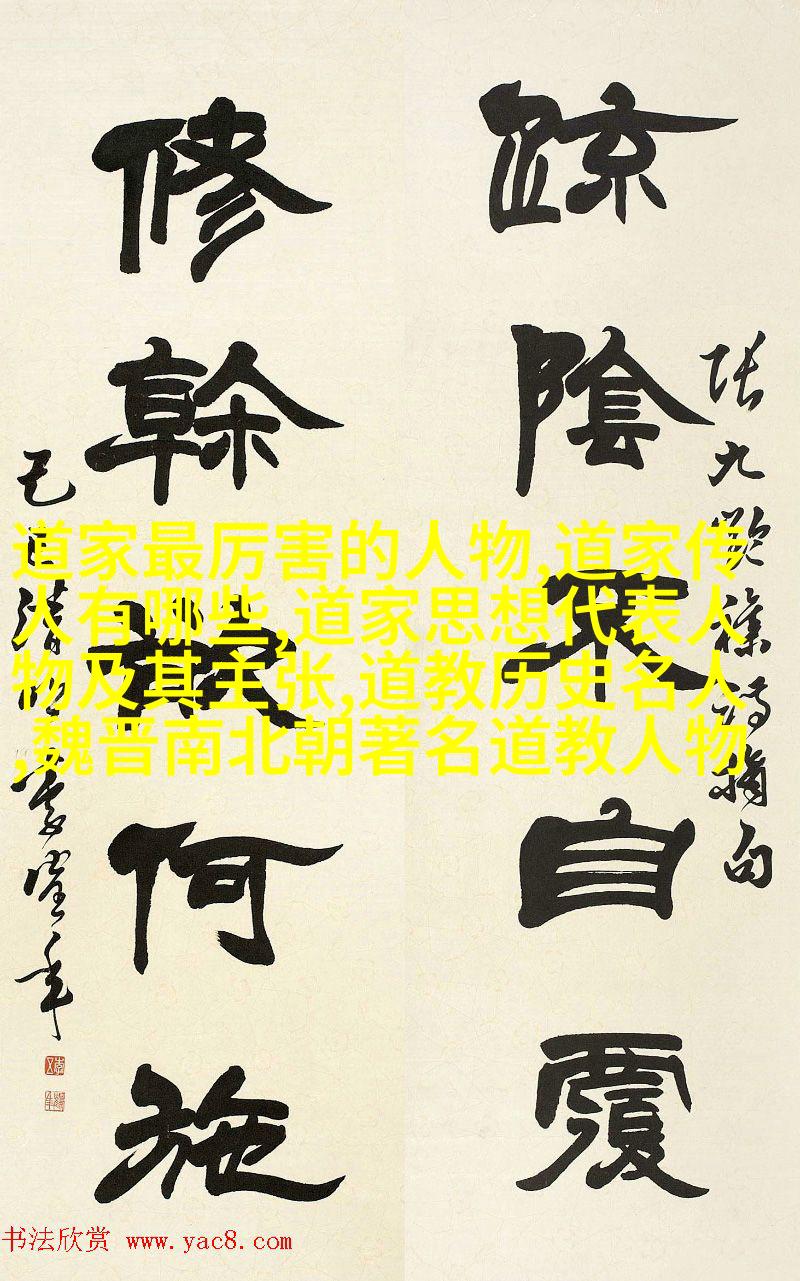 疎陰不自覆
修榦㪚何施
張九齡雜詩摘句
道家最厉害的人物,道家传
人有哪些,道家思想代表人
物及其主张,道教历史名人
,魏晋南北朝著名道教人物
书法欣赏 www.yac8.com